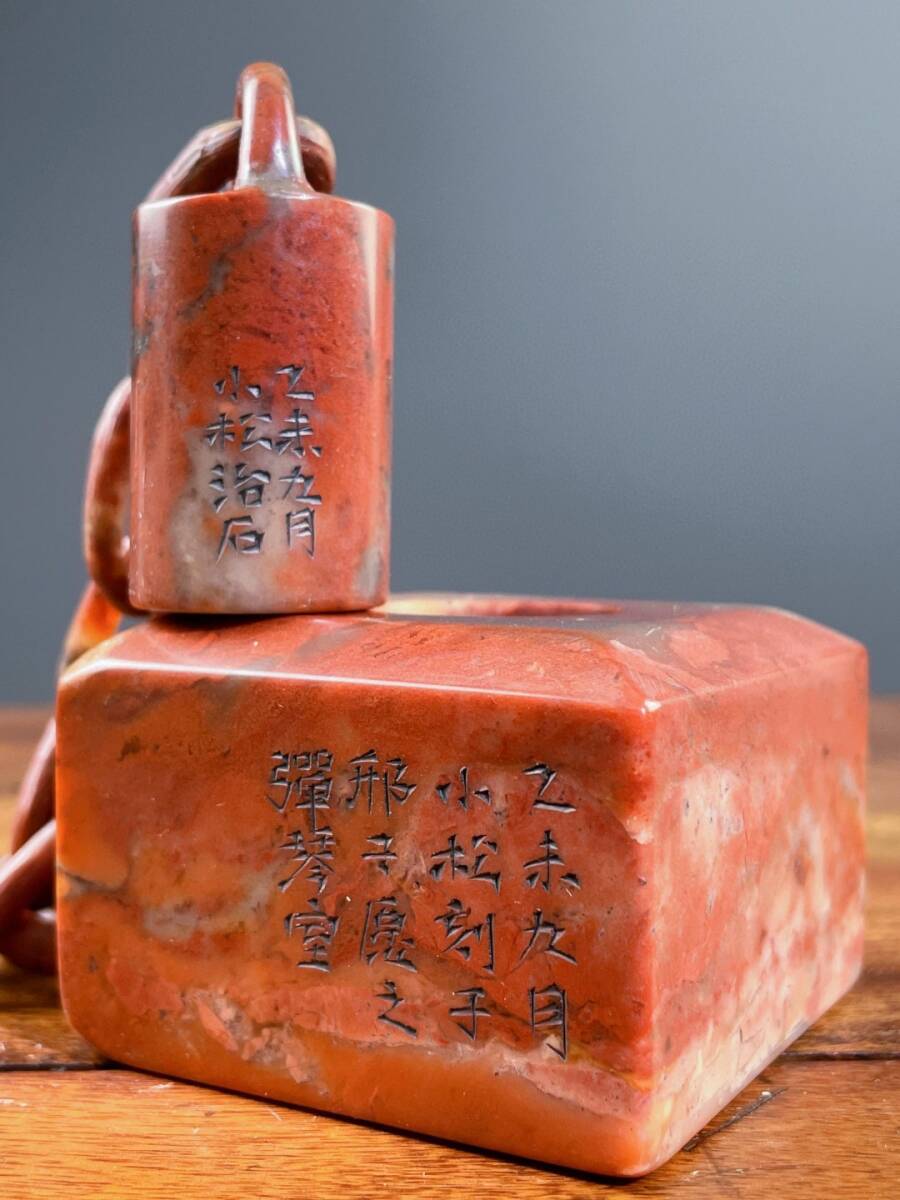 乙未九月
小松治石
乙未九月
小松刻于
邢子愿之
彈琴室